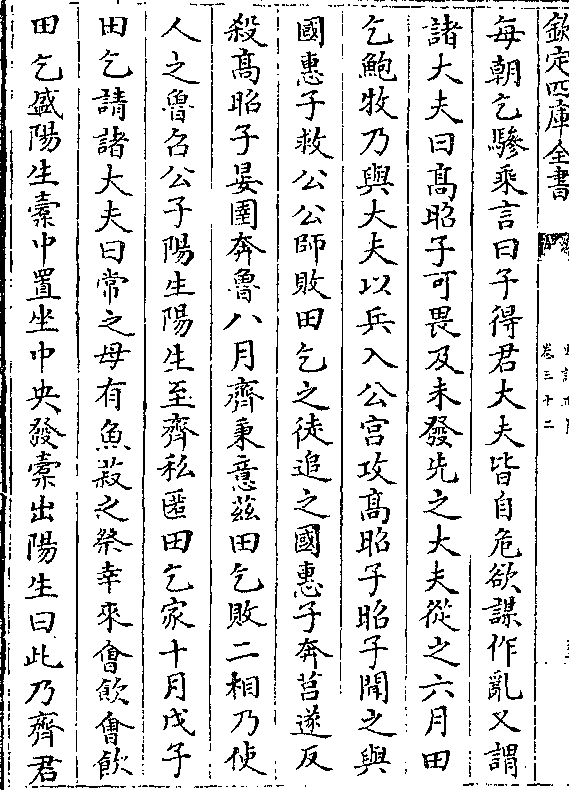 欽定四庫全書
卷三十二
每朝乞驂乘言曰子得君大夫皆自危欲謀作亂又謂
諸大夫曰髙昭子可畏及未發先之大夫從之六月田
乞鮑牧乃與大夫以兵入公宫攻髙昭子昭子聞之與
國惠子救公公師敗田乞之徒追之國惠子奔莒遂反
殺髙昭子晏圉奔魯八月齊秉意兹田乞敗二相乃使
人之魯召公子陽生陽生至齊私匿田乞家十月戊子
田乞請諸大夫曰常之母有魚菽之祭幸來㑹飲㑹飲
田乞盛陽生槖中置坐中央發槖出陽生曰此乃齊君